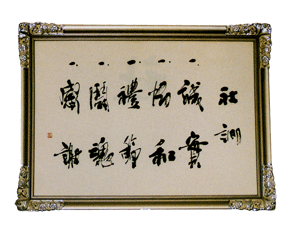 社訓
一、誠実
一、協和
一、禮節
一、闘魂
一、感謝